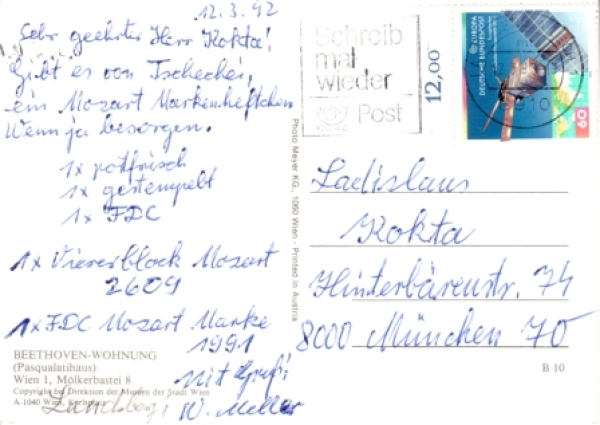 12.3.92
Sehr geehrter Herr Kokta!
Gibt es von Tschechei,
ein Mozart Markenheftchen
Wenn ja besorgen.
1x postfrisch
1x gestempelt
1x FDC
1x Viererblock Mozart
2609
1x FDC Mozart Marke
1991
Mit Gruß
W. Meller
BEETHOVEN-WOHNUNG
(Pasqualatihaus)
Wien 1, Mölkerbastei 8
Copyright by Direktion der Museen der Stadt Wien
A-1040 Wien, Karlsplatz
Landsberg
Photo Meyer KG., 1060 Wien - Printed in Austria
Schreib
mal
wieder
Post
12,00
EUROPA
DEUTSCHE BUNDESPOST
60
Ladislaus
Kokta
Hinterbärenstr. 74
8000 München 70
B 10